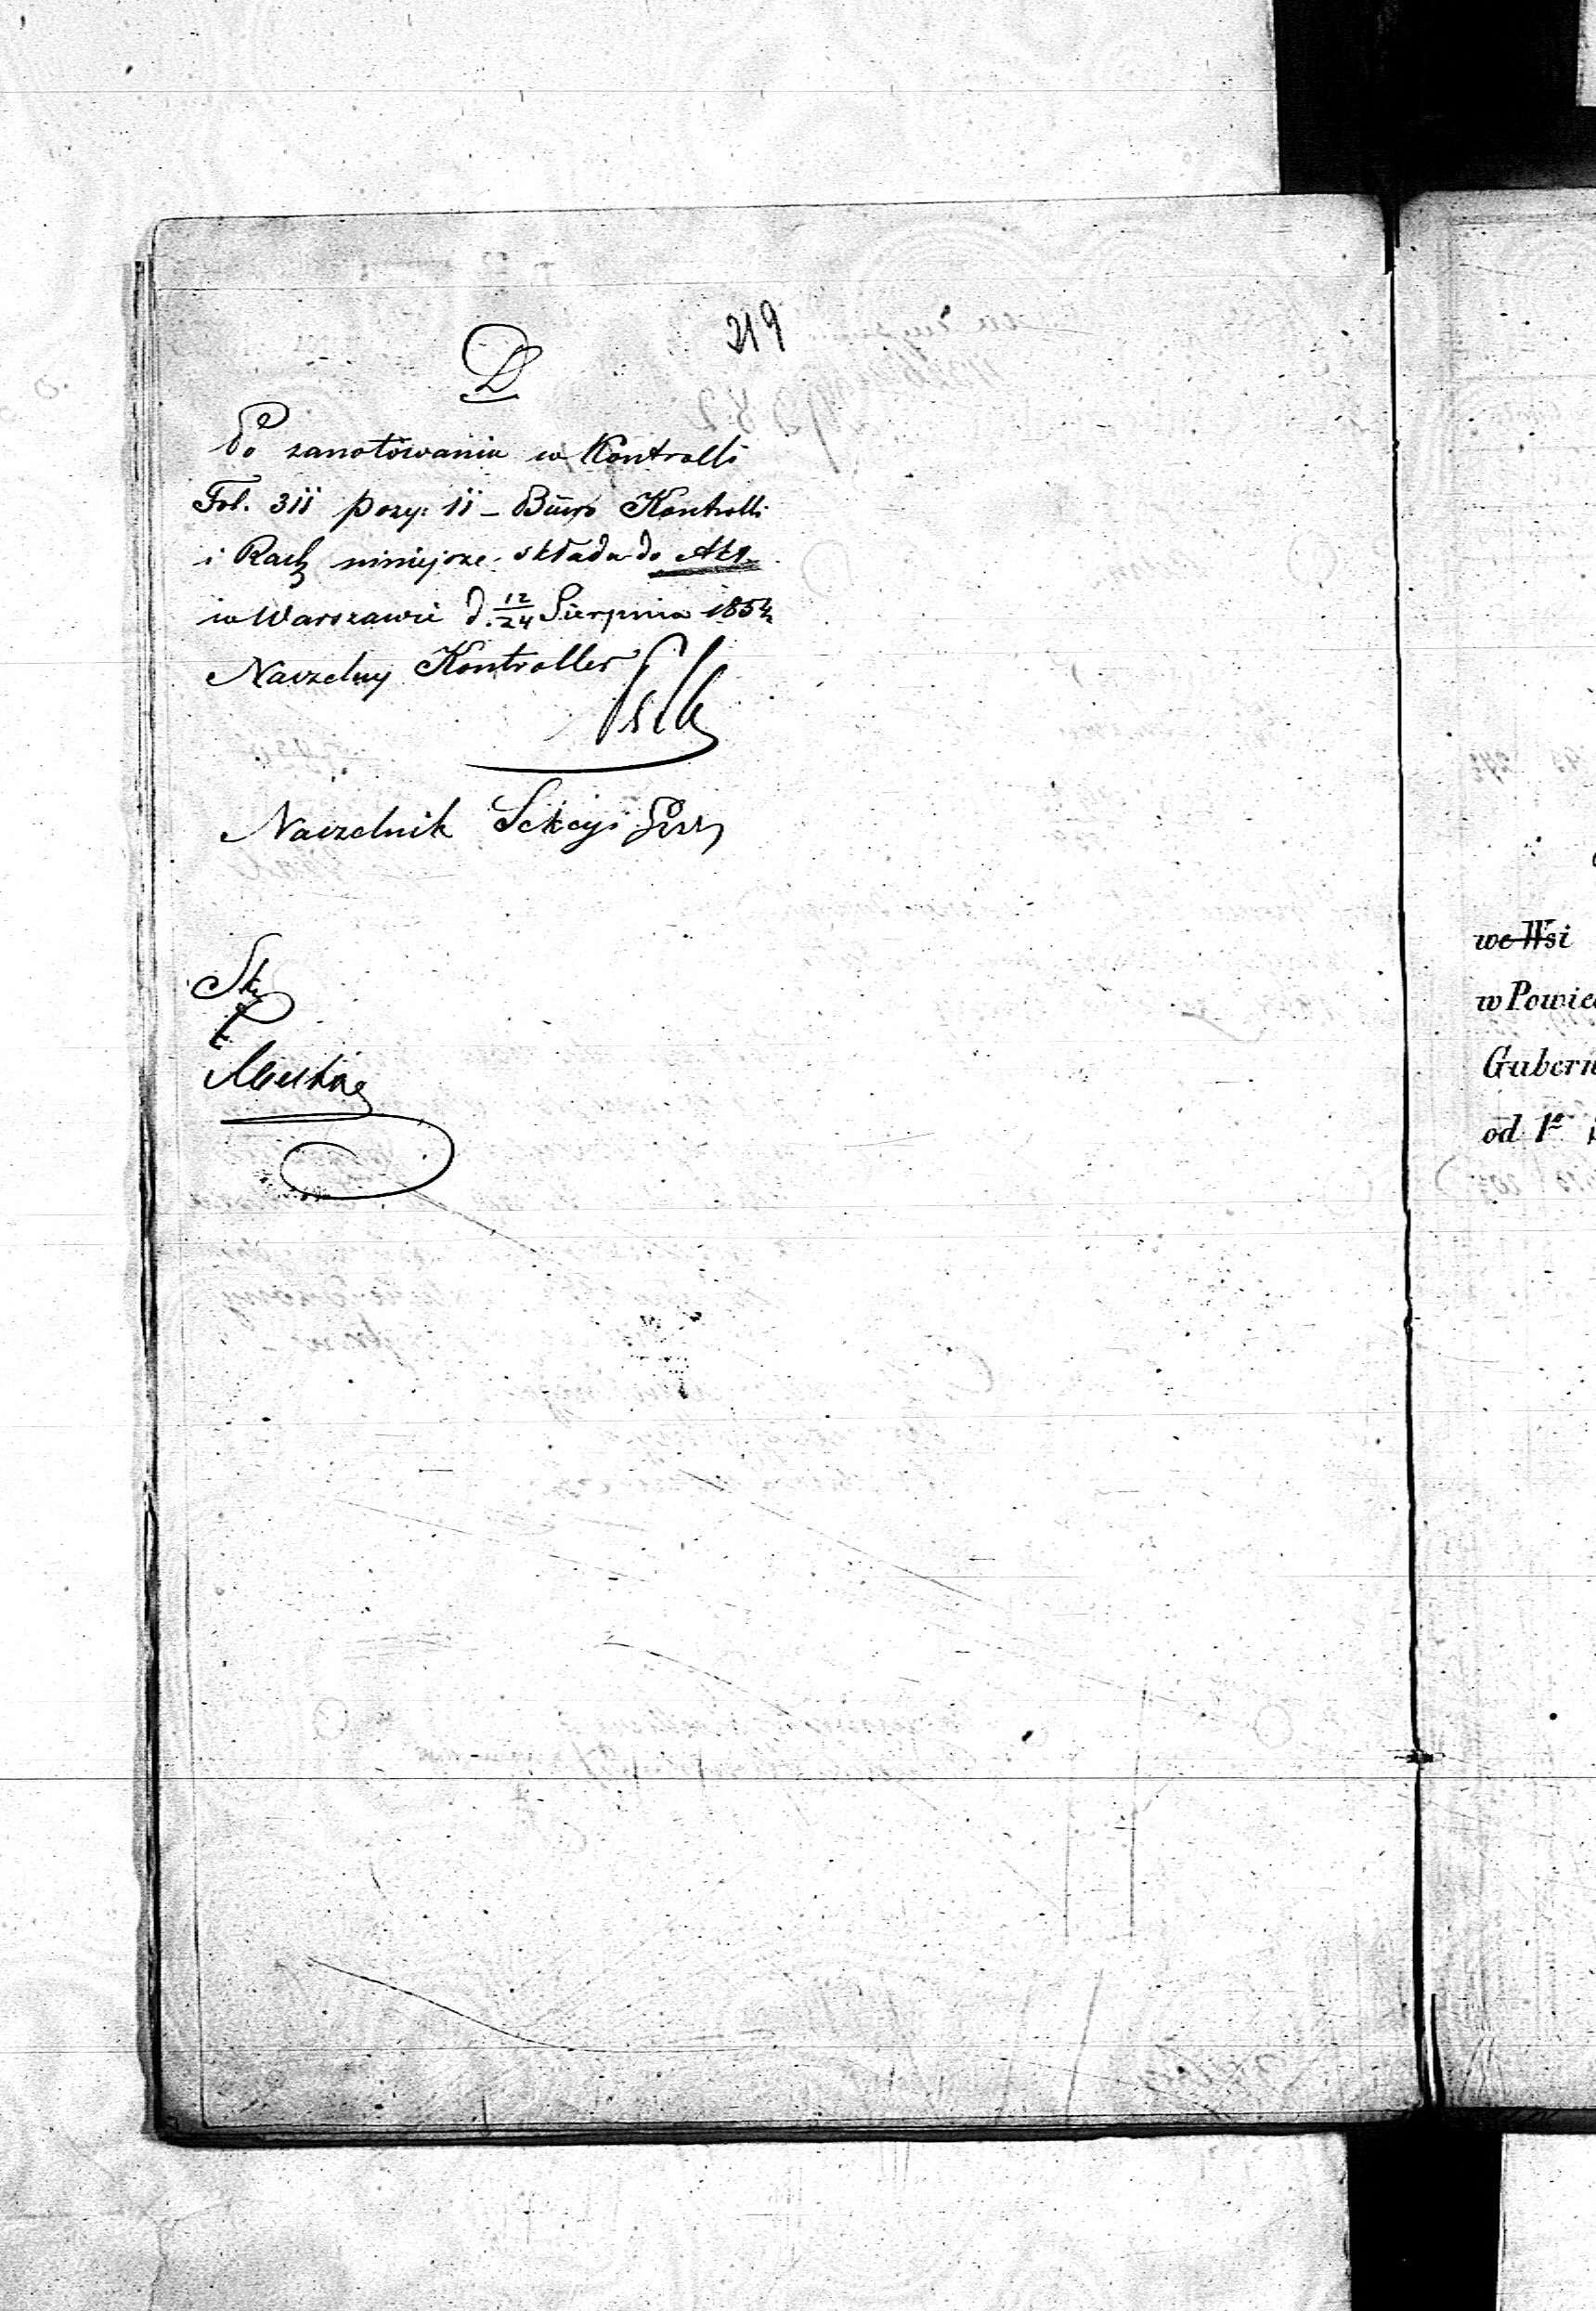 219
D
Po zanotowaniu w Kontrolli
Fol. 311 pozy: 11 - Biuro Kontrolli
i Rach niniejsze składa do Akt.
w Warszawie d. 12/24 Sierpnia 1854
Naczelny Kontroller
Naczelnik Sekcyi
we Wsi
w Powie
Gubern
od 1o